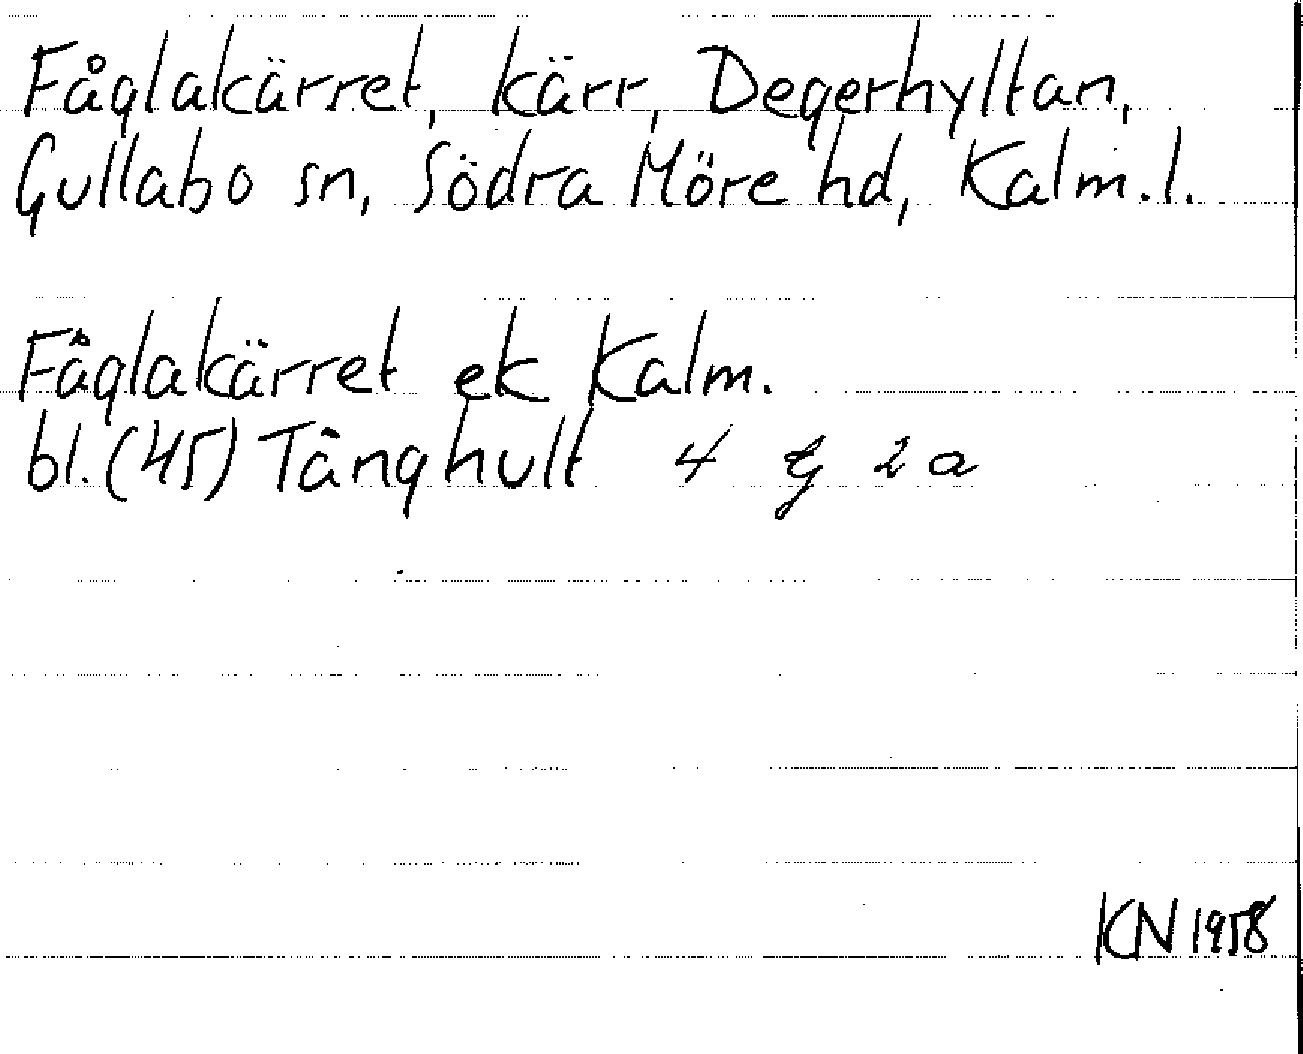 Fåglakärret, kärr, Degerhyltan,
Gullabo sn, Södra Möre hd, Kalm.l.
Fåglakärret ek Kalm.
bl.(45) Tånghult 4 G 2 a
KN 1958